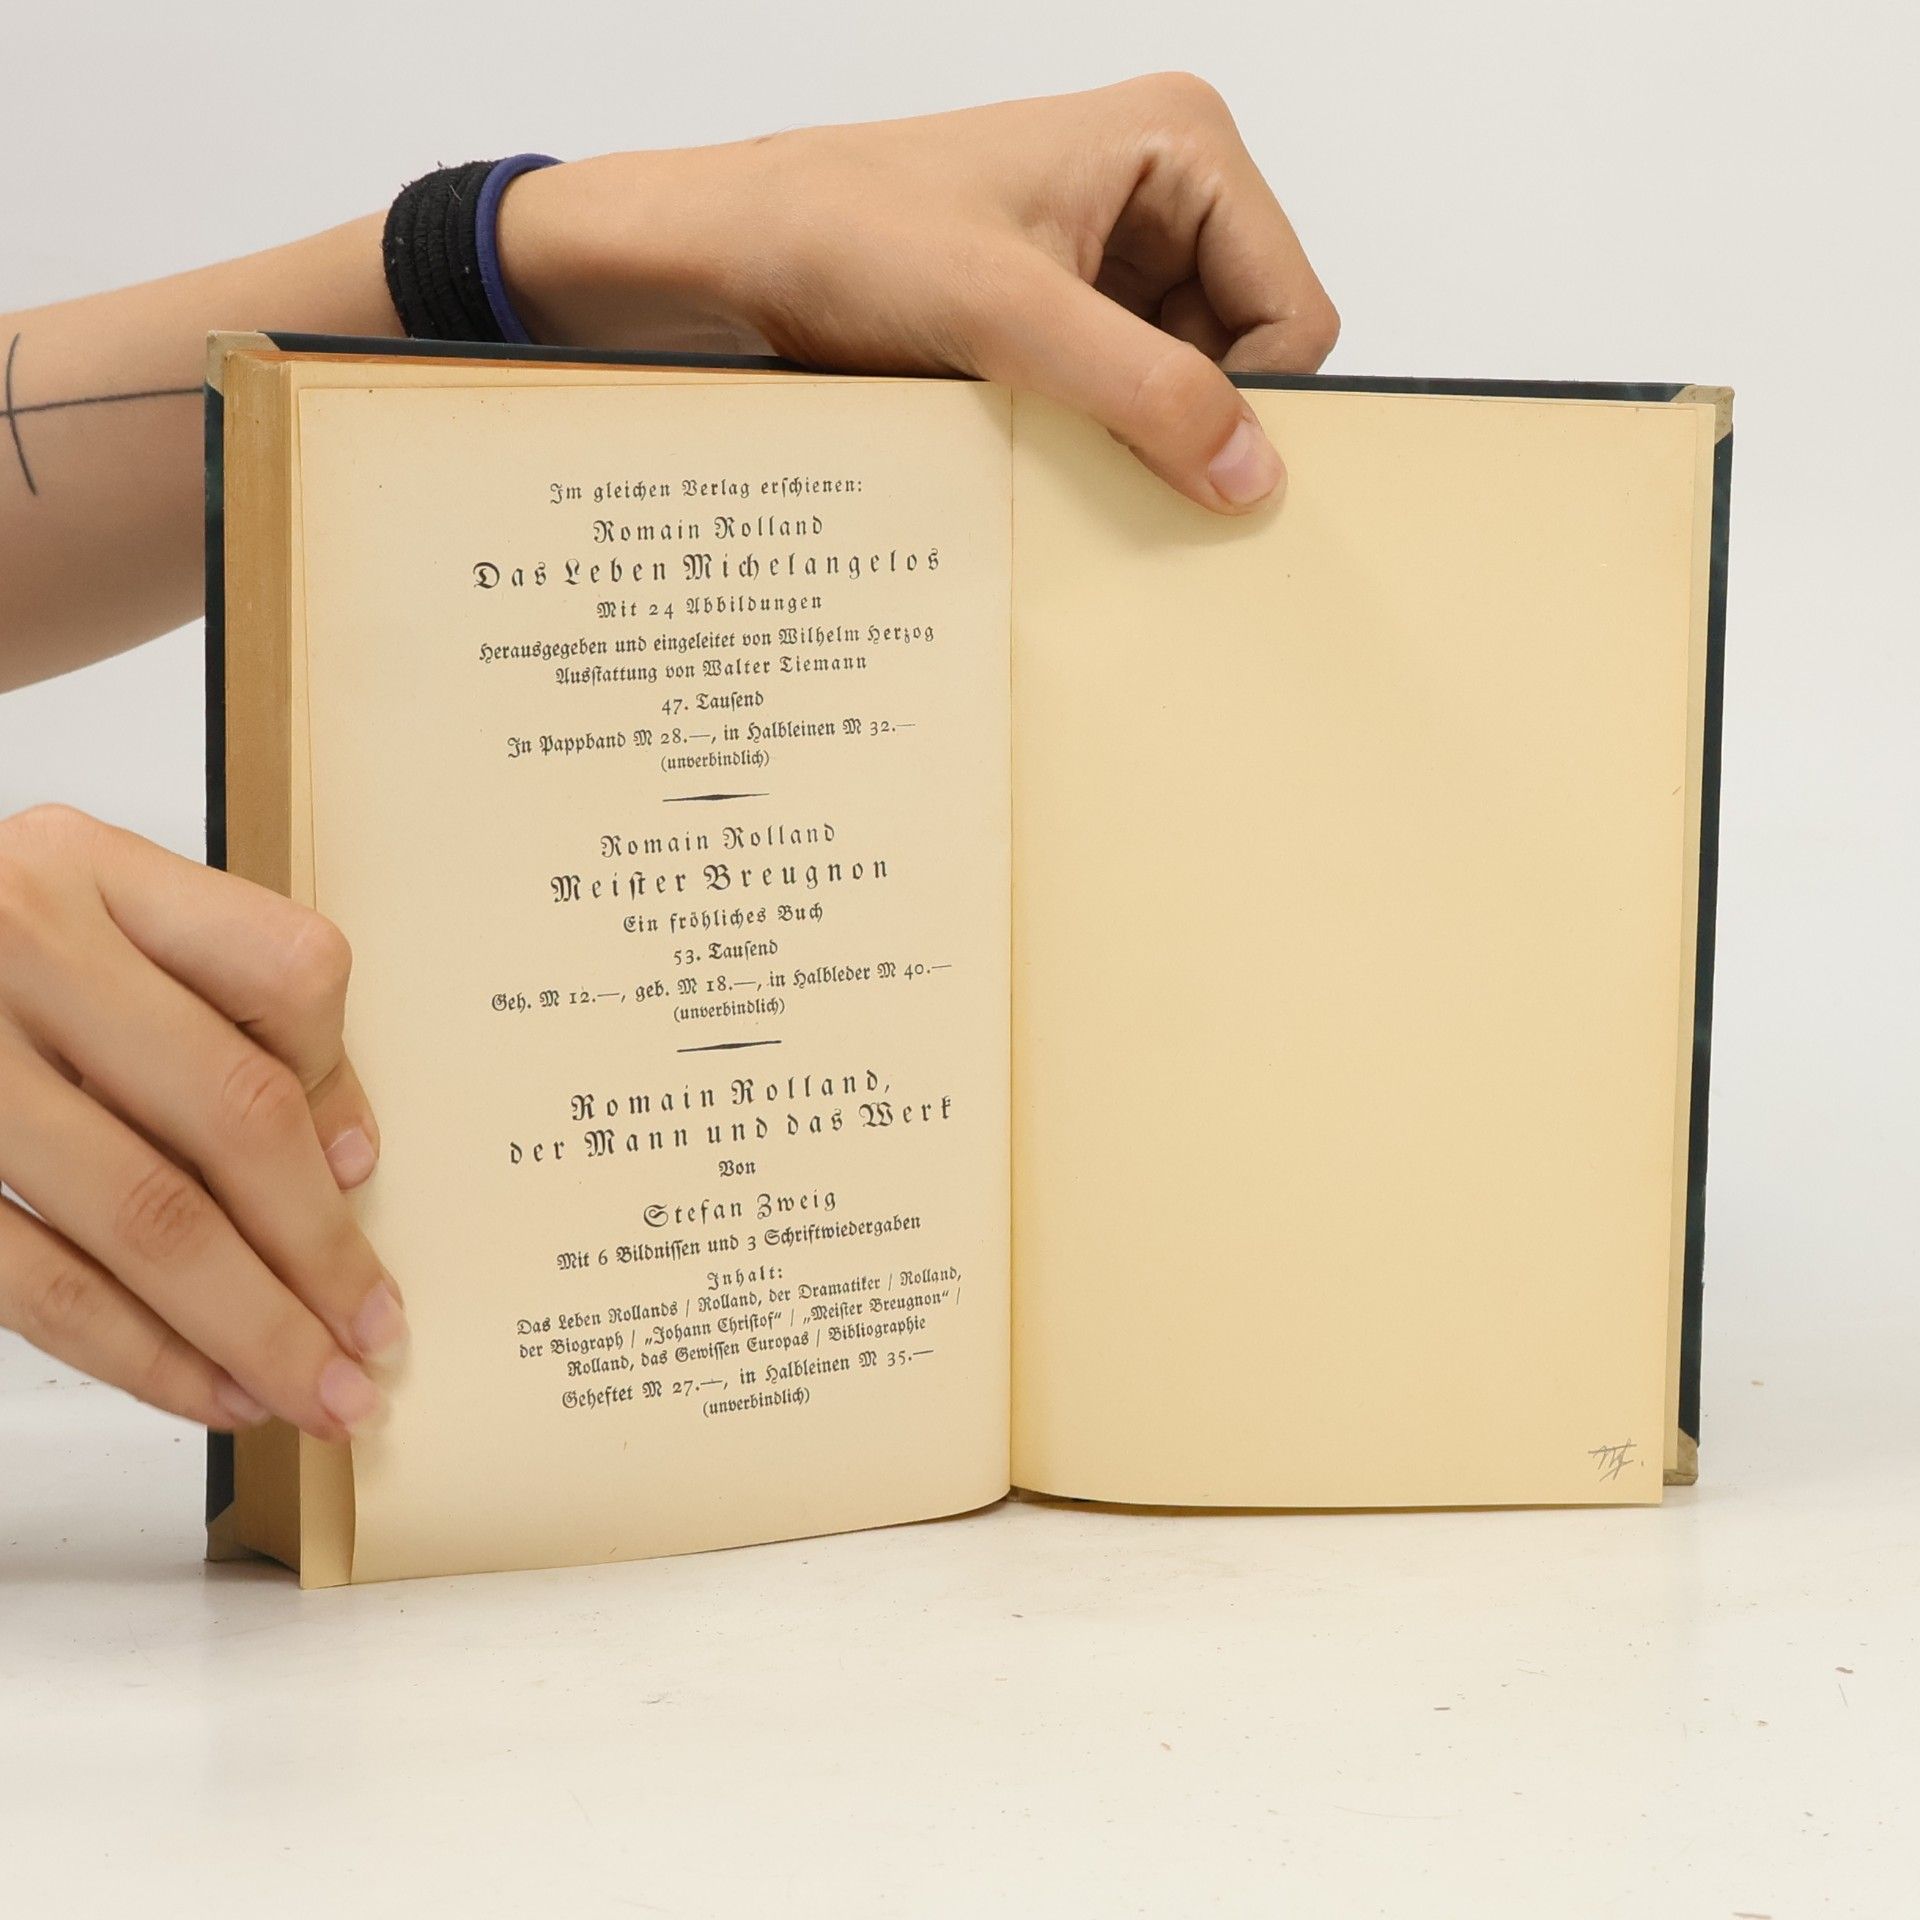 Im gleichen Verlag erſchienen:
Romain Rolland
Das Leben Michelangelos
Mit 24 Abbildungen
Herausgegeben und eingeleitet von Wilhelm Herzog
Ausſtattung von Walter Tiemann
47. Tauſend
In Pappband M 28.—, in Halbleinen M 32.—
(unverbindlich)
Romain Rolland
Meiſter Breugnon
Ein fröhliches Buch
53. Tauſend
Geh. M 12.—, geb. M 18.—, in Halbleder M 40.—
(unverbindlich)
Romain Rolland,
der Mann und das Werk
Von
Stefan Zweig
Mit 6 Bildniſſen und 3 Schriftwiedergaben
Inhalt:
Das Leben Rollands / Rolland, der Dramatiker / Rolland,
der Biograph / „Johann Chriſtof“ / „Meiſter Breugnon“ /
Rolland, das Gewiſſen Europas / Bibliographie
Geheftet M 27.—, in Halbleinen M 35.—
(unverbindlich)